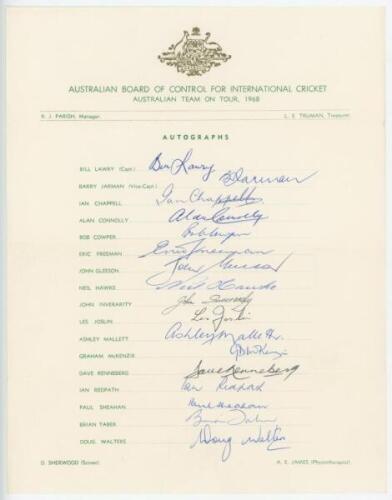 AUSTRALIAN BOARD OF CONTROL FOR INTERNATIONAL CRICKET
AUSTRALIAN TEAM ON TOUR, 1968
R. J. PARISH, Manager.
L. E. TRUMAN, Treasurer.
AUTOGRAPHS
BILL LAWRY (Capt.) Bill Lawry
BARRY JARMAN (Vice-Capt.) B Jarman
IAN CHAPPELL Ian Chappell
ALAN CONNOLLY Alan Connolly
BOB COWPER Bob Cowper
ERIC FREEMAN Eric Freeman
JOHN GLEESON John Gleeson
NEIL HAWKE Neil Hawke
JOHN INVERARITY John Inverarity
LES JOSLIN Les Joslin
ASHLEY MALLETT Ashley Mallett.
GRAHAM McKENZIE
DAVE RENNEBERG Dave Renneberg
IAN REDPATH Ian Redpath
PAUL SHEAHAN Paul Sheahan
BRIAN TABER Brian Taber
DOUG. WALTERS Doug Walters
D. SHERWOOD (Scorer)
A. E. JAMES (Physiotherapist)